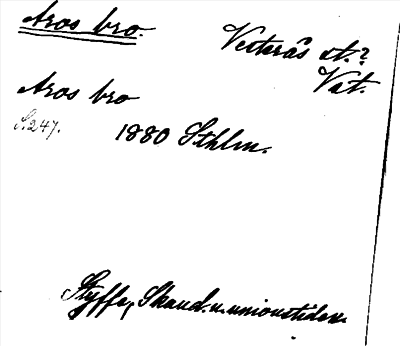 Aros bro.
Vesterås st.?
Vat.
Aros bro
S.247.
1880 Sthlm.
Styffe, Skand. u. unionstiden.